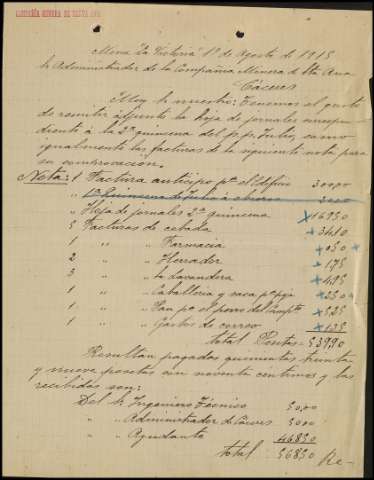 COMPAÑÍA MINERA DE SANTA ANA
Mina "La Victoria" 1º de Agosto de 1915
Sr Administrador de la Compañia Minera de Sta Ana
Cáceres
Muy Sr nuestro: Tenemos el gusto
de remitir adjunto la hoja de jornales correspon-
diente á la 2ª quincena del p.p. Julio, como
igualmente las facturas de la siguiente nota para
su comprovación.
Nota: 1 Factura anticipo pr el Edificio 300,00
" 1ª Quincena de Julio á
" Hoja de jornales 2ª quincena 169,50
5 Facturas de cebada 34,10
1 " " Farmacia
2 " " Herrador 1,75
3 " " la lavandera 4,95
1 " " Caballeria y
1 " " pan pa el perro del 5,25
1 " " Gastos de correo
total Pesetas 539,90
Resultan pagadas quinientas treinta
y nueve pesetas con noventa centimos y las
recibidas son:
Del Sr Ingeniero Técnico 50,00
" " Administrador de Cáceres 50,00
" " Ayudante 468,50
total: 568,50 Re-